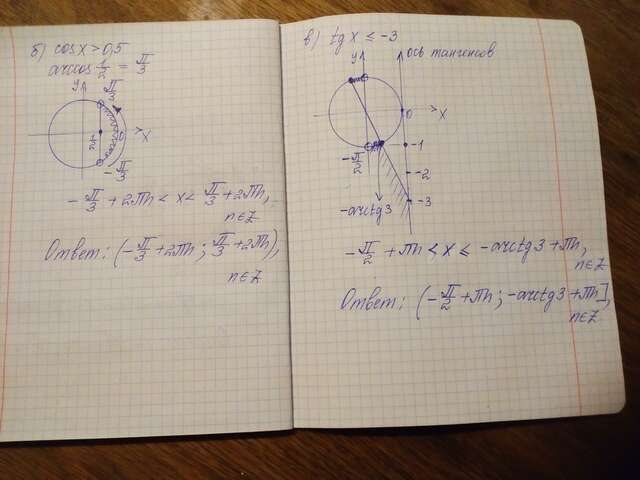 б) cos x > 0,5
arccos 1/2 = π/3
y
π/3
1/2
0
x
-π/3
-π/3 + 2πn < x < π/3 + 2πn,
n∈Z
Ответ: (-π/3 + 2πn; π/3 + 2πn),
n∈Z
в) tg x ≤ -3
y
ось тангенсов
0
x
-1
-π/2
-2
-3
-arctg3
-π/2 + πn < x ≤ -arctg3 + πn,
n∈Z
Ответ: (-π/2 + πn; -arctg3 + πn],
n∈Z